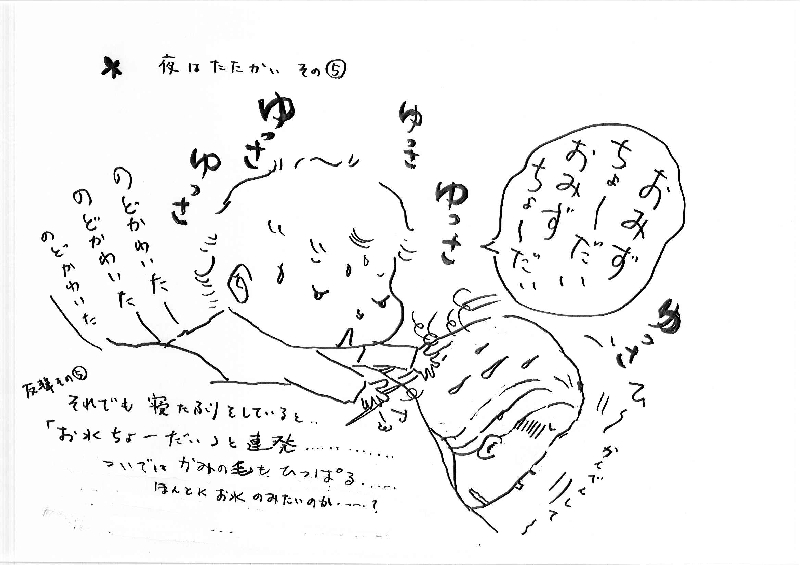 * 夜はたたかい その⑤
ゆっさ
ゆっさ
ゆっさ
ゆっさ
おみず
ちょーだい
おみず
ちょーだい
のどかわいた
のどかわいた
のどかわいた
ゆっさ
その⑤
それでも 寝たふりをしていると‥
「お水ちょーだい」と連発‥‥‥‥
ついでは かみの毛も ひっぱる‥‥
ほんとに お水 のみたいのか‥‥？